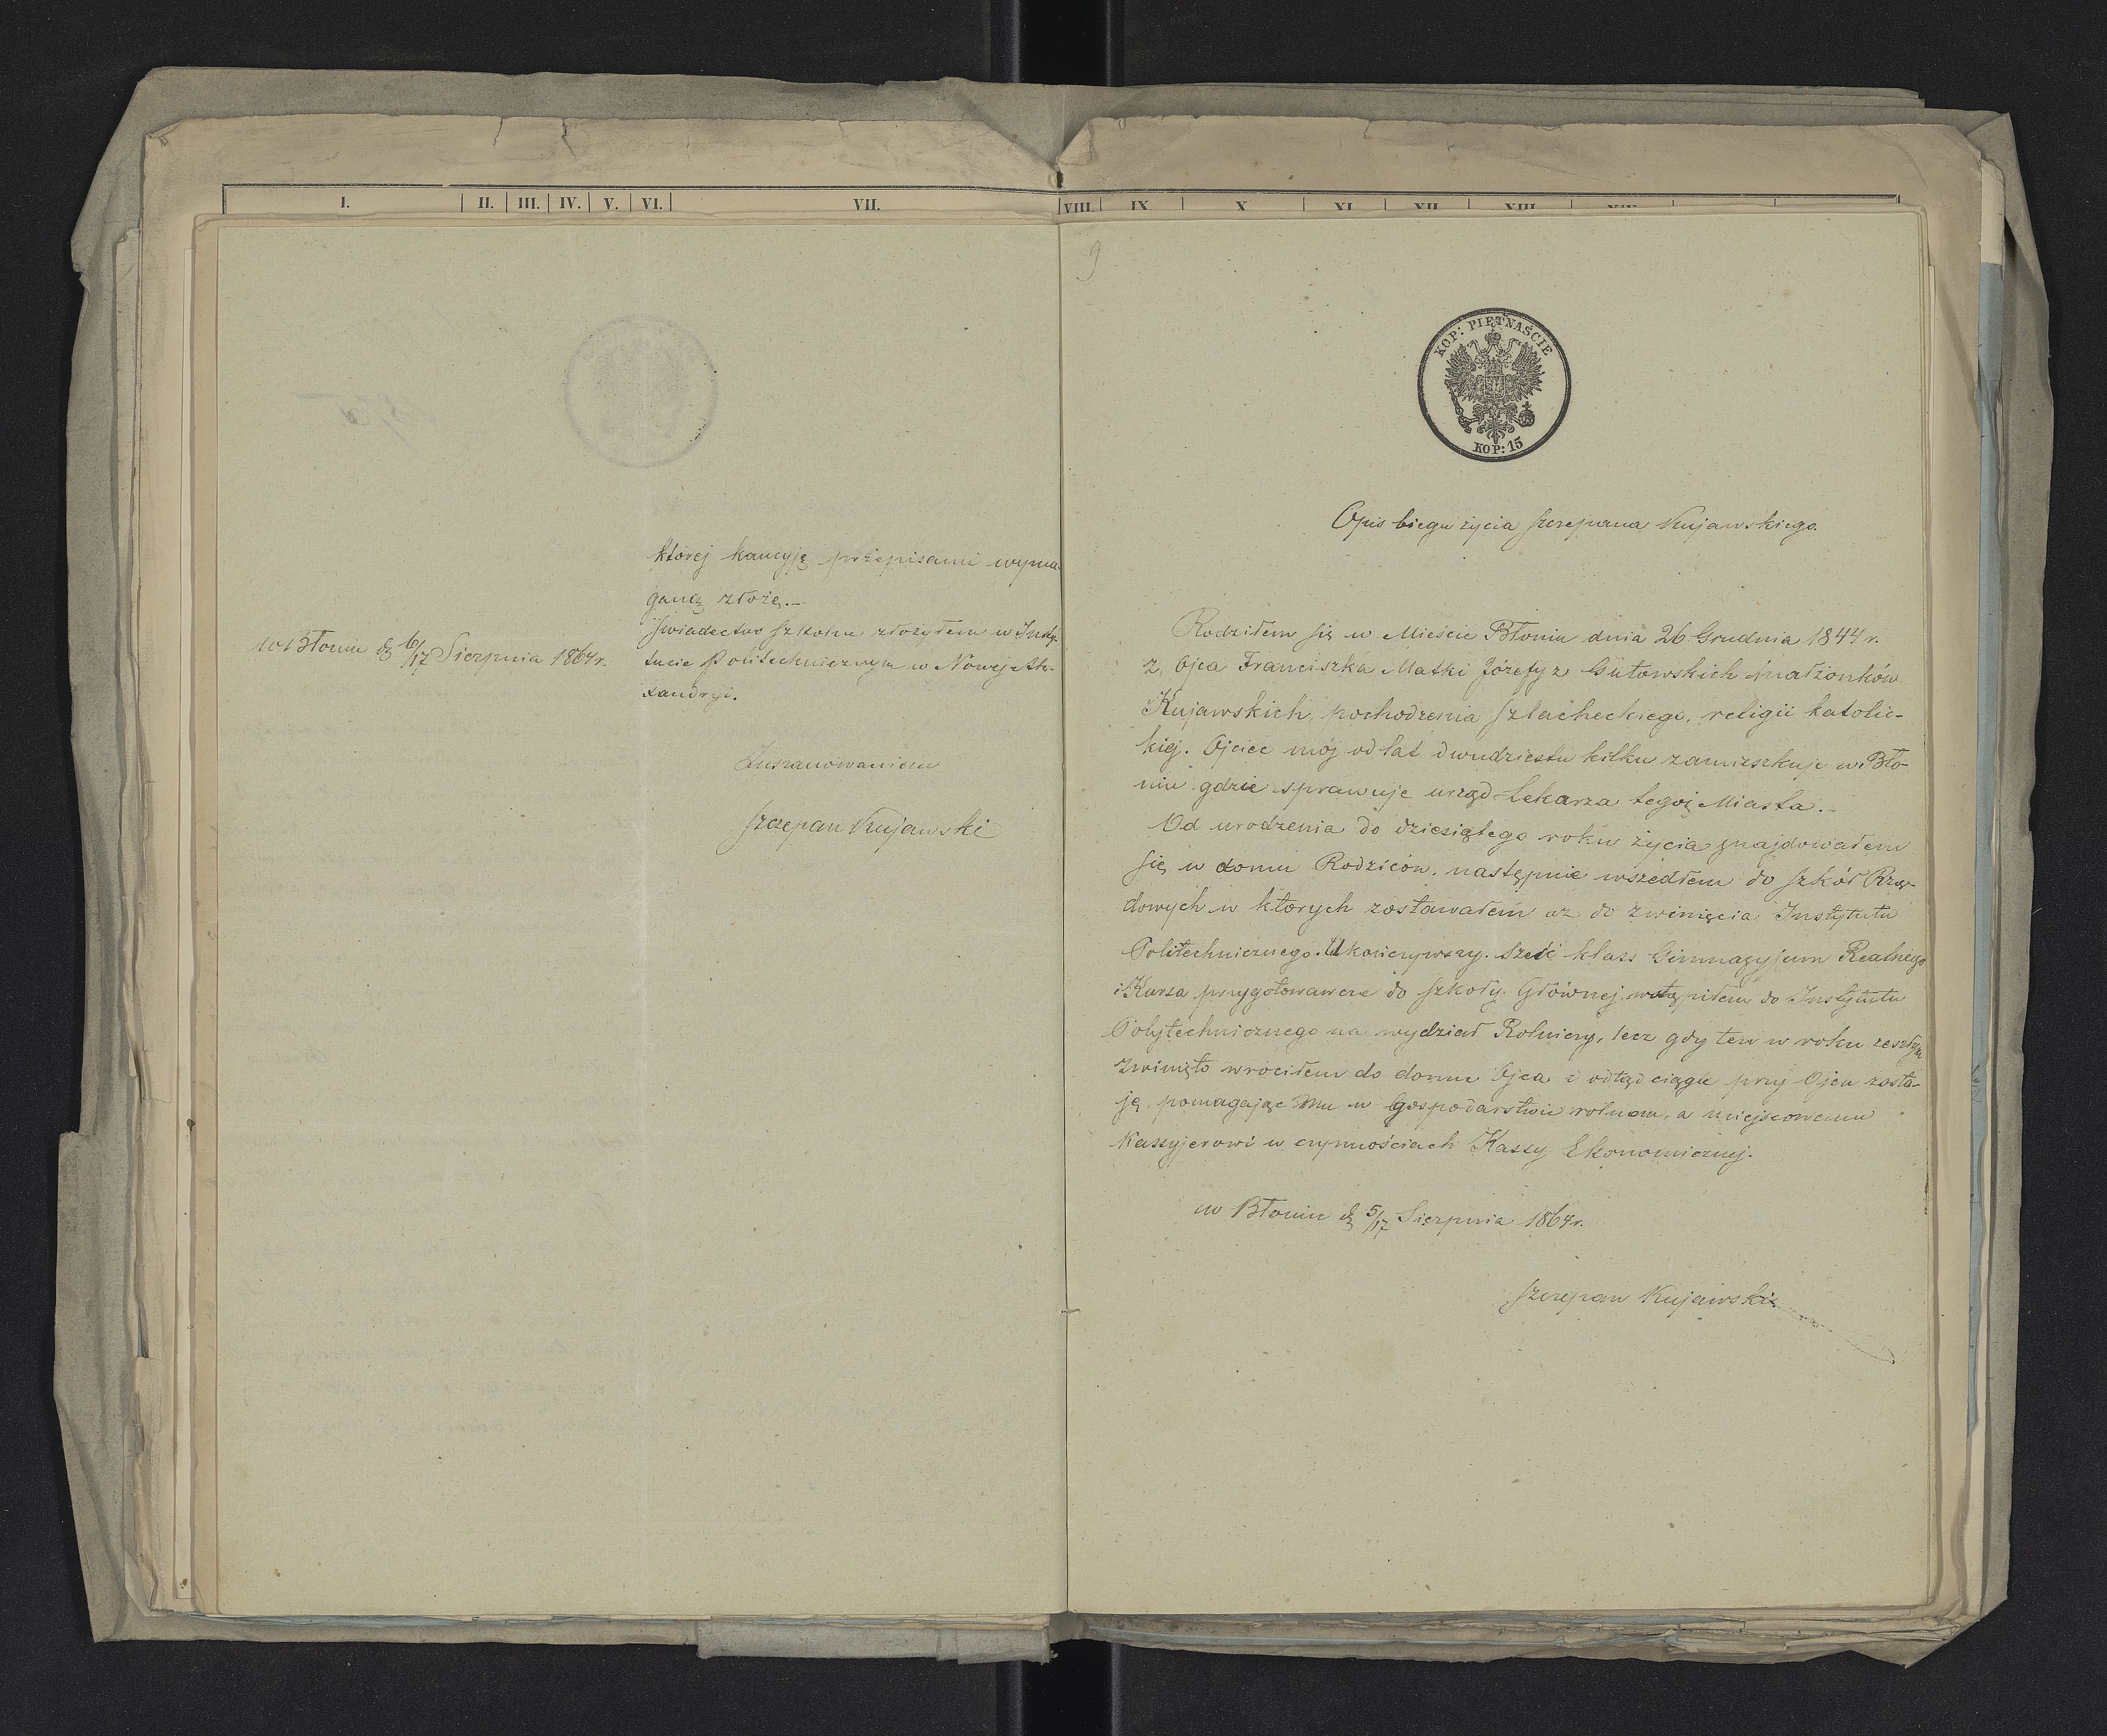 I. II. III. IV. V. VI. VII. VIII. IX. X. XI. XII. XIII. XIV.
której kaucyję przepisami wyma-
ganą złożę.–
Świadectwo szkolne złożyłem w Insty-
tucie Politechnicznym w Nowej Ale-
xandryi.
w Błoniu d 6/17 Sierpnia 1864 r.
Zuszanowaniem
Szczepan Kujawski
9
KOP: PIĘTNAŚCIE
KOP: 15
Opis biegu życia Szczepana Kujawskiego.
Rodziłem się w Mieście Błoniu dnia 26 Grudnia 1844 r.
z Ojca Franciszka Matki Józefy z Gutowskich małżonków
Kujawskich, pochodzenia szlacheckiego, religii katolic-
kiej. Ojciec mój od lat dwudziestu kilku zamieszkuje w Bło-
niu gdzie sprawuje urząd Lekarza tegoż Miasta.–
Od urodzenia do dziesiątego roku życia znajdowałem
się w domu Rodziców, następnie wszedłem do szkół Rzą-
dowych w których zostawałem aż do zwinięcia Instytutu
Politechnicznego. Ukończywszy sześć klass Gimnazyjum Realnego
i Kursa przygotowawcze do szkoły Głównej wstąpiłem do Instytutu
Polytechnicznego na wydział Rolniczy, lecz gdy ten w roku zeszłym
zwinięto wróciłem do domu Ojca i odtąd ciągle przy Ojcu zosta-
ję, pomagając mu w gospodarstwie rolnem, a miejscowemu
Kassyjerowi w czynnościach Kassy Ekonomicznej.
w Błoniu d 5/17 Sierpnia 1864 r.
Szczepan Kujawski